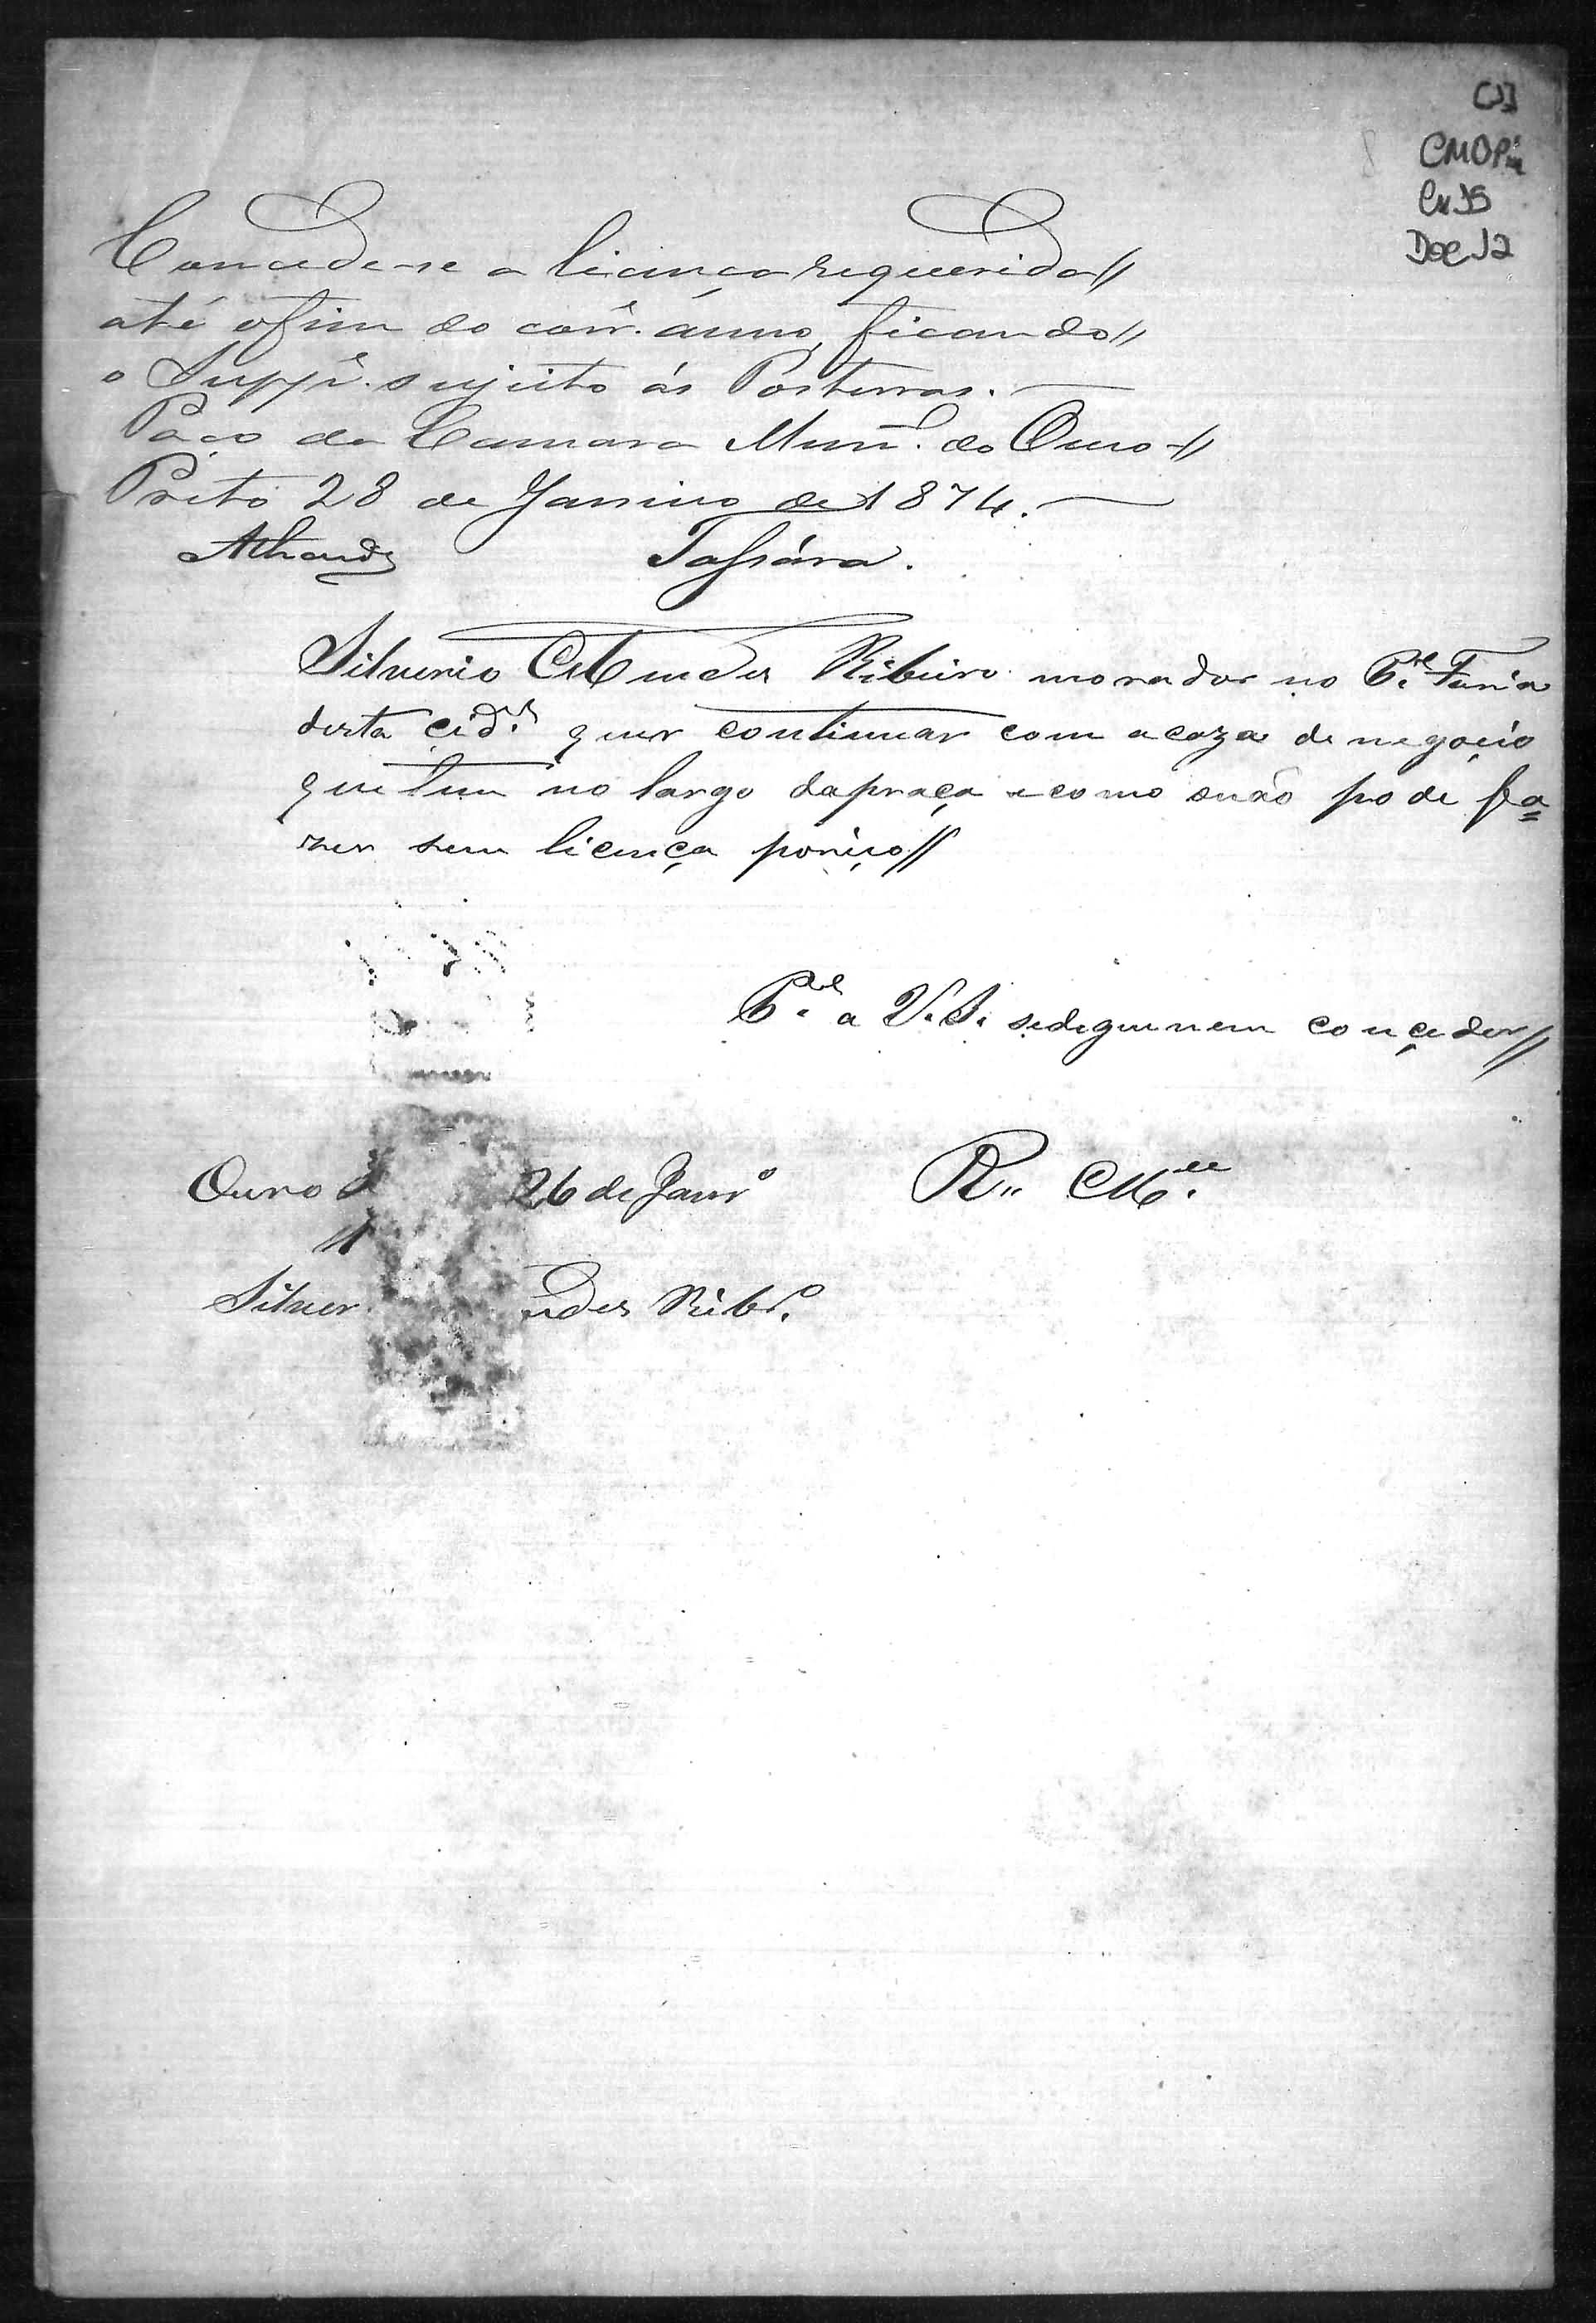 [1]
CMOP
Cx 35
Doc 12
Concede-se a licença requerida//
até o fim do corr.e anno, ficando//
o Supp.e sujeito ás Posturas.
Paço da Camara Mun.l do Ouro-//
Preto 28 de Janeiro de 1874.
Tassára.
Silverio Mendes Ribeiro morador no P.e Faria
desta cid.e quer continuar com a caza de negocio
que tem no largo da praça e como o não pode fa=
zer sem licença porisso//
P. a V.S. se dignem conçeder//
Ouro 26 de Janr.o
R. M.ce
Silver ndes Ribr.o